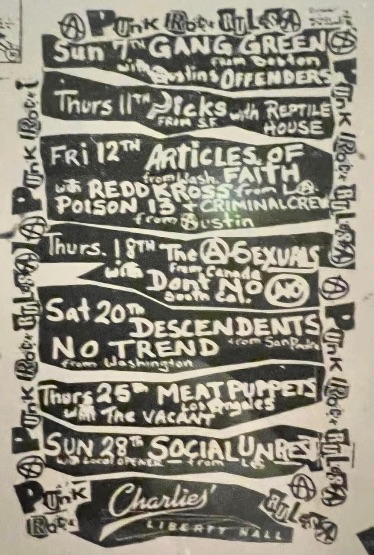 PUNK ROCK RULES
SUN 7TH GANG GREEN
from Boston
with Austin's OFFENDERS
Thurs 11TH Dicks with REPTILE
FROM S.F. HOUSE
FRI 12TH ARTICLES OF
from Wash. FAITH
with REDD KROSS from L.A.
POISON 13 + CRIMINAL CREW
from Austin
Thurs. 18TH The ASEXUALS
from Canada
with Don't NO NO
South Cal.
Sat 20th DESCENDENTS
NO TREND from San Pedro
from Washington
Thurs 25th MEAT PUPPETS
Los Angeles
with The VACANT
SUN 28TH SOCIAL UNREST
with Local OPENER - from
PUNK Charlies' RULES
ROCK LIBERTY HALL
PUNK ROCK RULES
PUNK ROCK RULES
PUNK ROCK RULES
PUNK ROCK RULES